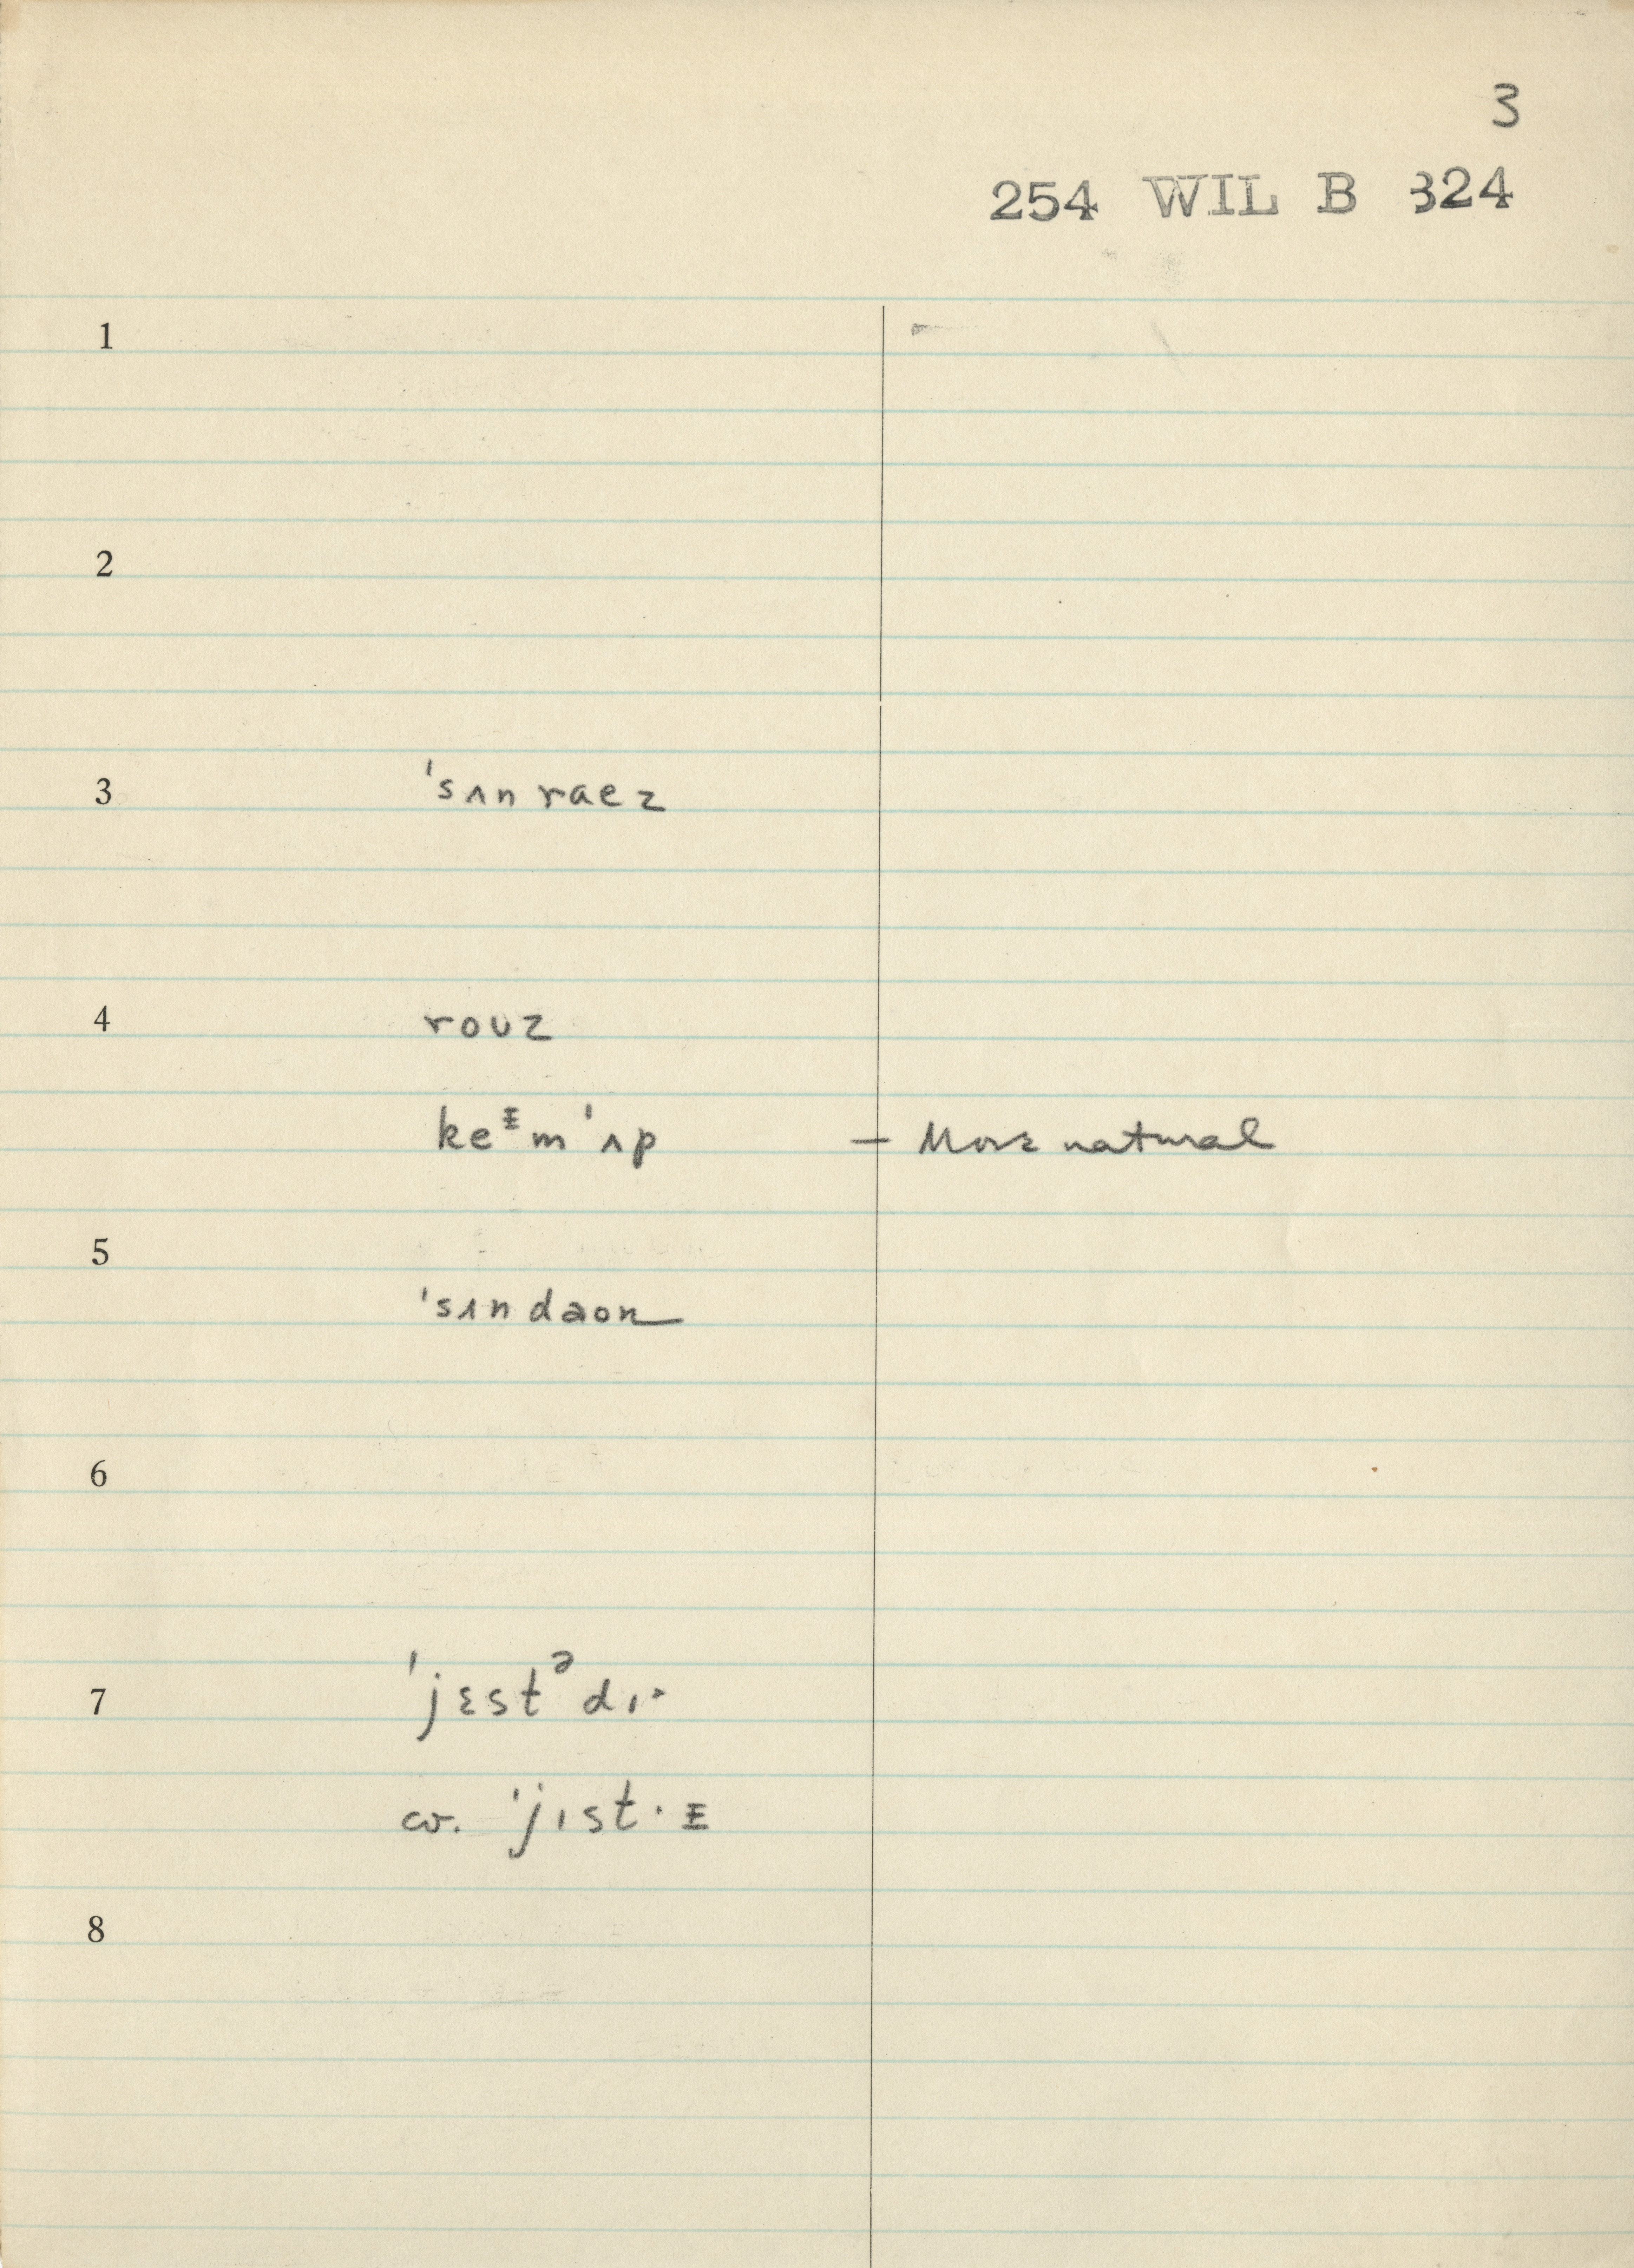 3
254 WIL B 324
1
2
3 ˈsʌn raez
4 rouz
keᵻm ˈʌp — More natural
5
ˈsʌn daon
6
7 ˈjɛstᵊdɪ˃
cv. ˈjɪst·ᵻ
8